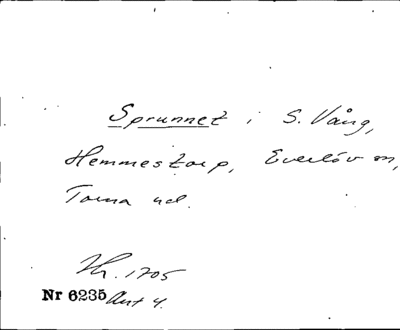 Sprunnet i S. Vång,
Hemmestorp, Everlöv sn,
Torna hd.
Hh. 1705
Nr 6235 Akt 4.